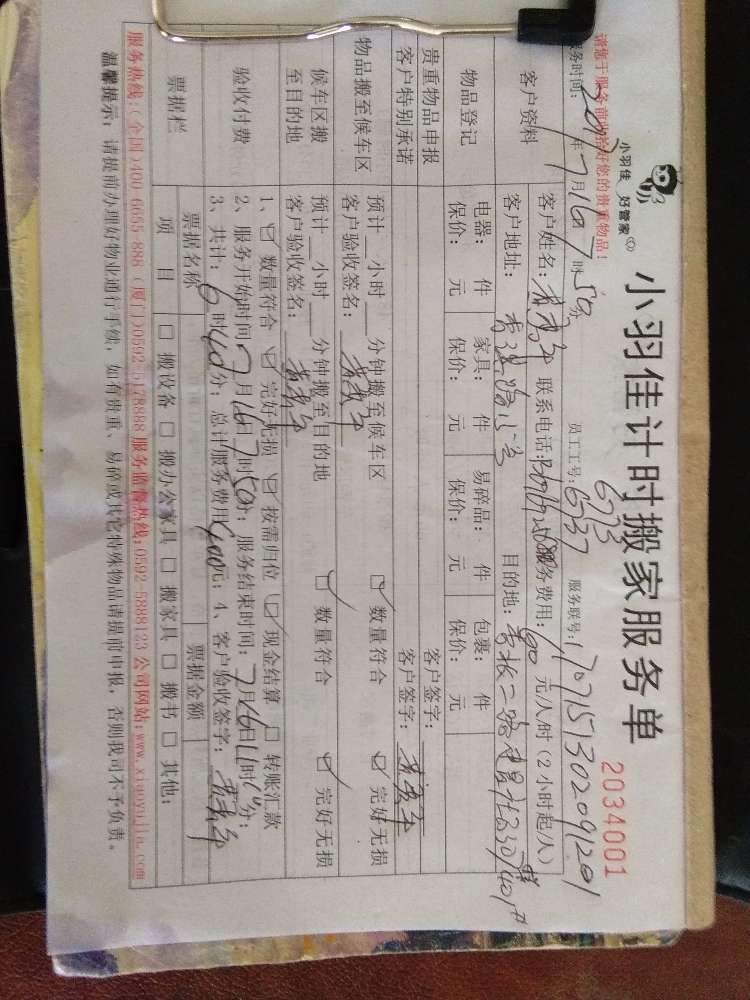 小羽佳 好管家
小羽佳计时搬家服务单
2034001
请您于服务前收拾好您的贵重物品!
6773
员工工号: 6737 服务联号:
服务时间: 2017年7月16日7时50分
客户资料
客户姓名: 联系电话: 服务费用: 元/小时(2小时起/人)
客户地址: 目的地:
物品登记
电器: 件 家具: 件 易碎品: 件 包裹: 件
保价: 元 保价: 元 保价: 元 保价: 元
贵重物品申报 客户签字:
客户特别承诺 客户签字:
物品搬至候车区
预计 小时 分钟搬至候车区 ☑ 数量符合 ☑ 完好无损
客户验收签名:
候车区搬至目的地
预计 小时 分钟搬至目的地 ☑ 数量符合 ☑ 完好无损
客户验收签名:
验收付费
1、☑ 数量符合 ☑ 完好无损 ☑ 按需归位 ☑ 现金结算 □ 转账汇款
2、服务开始时间: 7月16日7时50分; 服务结束时间: 7月16日11时 分;
3、共计: 时40分; 总计服务费用: 元; 4、客户验收签字:
票据栏
票据名称 票据金额
项 目 □ 搬设备 □ 搬办公家具 □ 搬家具 □ 搬书 □ 其他:
服务热线:(全国)400-6655-888 (厦门)0592-5178888 服务监督热线:0592-5888123 公司网站:www.xiaoyujia.com
温馨提示: 请提前办理好物业通行手续, 如有贵重、易碎或其它特殊物品请提前申报, 否则我司不予负责。